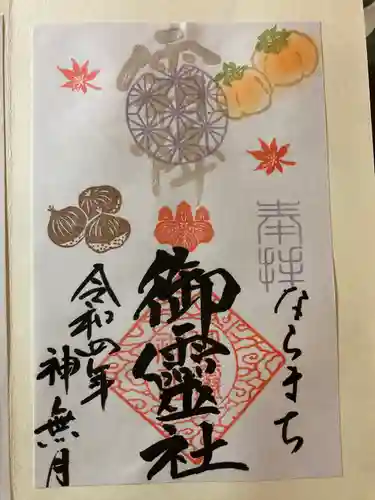 奉拝
ならまち
御霊社
令和四年
神無月